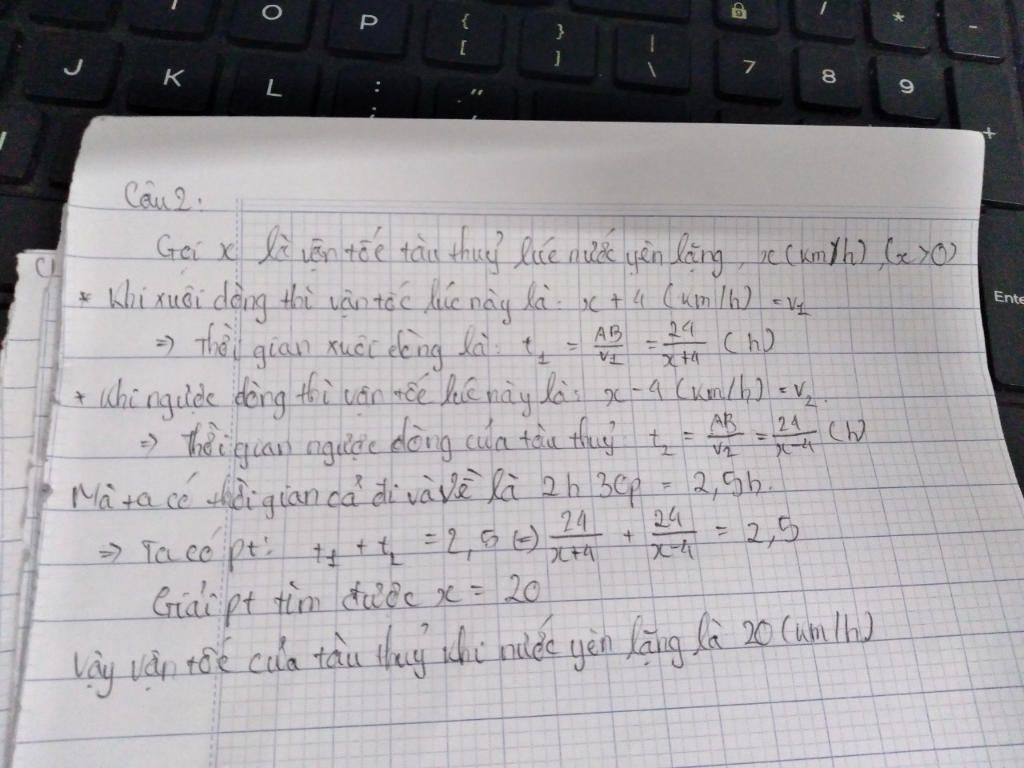 I O P { [ } ] | \ 7 / * -
J K L : ; " 7 8 9 +
Enter
Câu 2:
Gọi x là vận tốc tàu thuỷ lúc nước yên lặng, x (km/h), (x>0)
* Khi xuôi dòng thì vận tốc lúc này là: x + 4 (km/h) = v₁
=> Thời gian xuôi dòng là: t₁ = AB/v₁ = 24/(x+4) (h)
* Khi ngược dòng thì vận tốc lúc này là: x - 4 (km/h) = v₂.
=> Thời gian ngược dòng của tàu thuỷ: t₂ = AB/v₂ = 24/(x-4) (h)
Mà ta có thời gian cả đi và về là 2h 30p = 2,5h.
=> Ta có pt: t₁ + t₂ = 2,5 (=) 24/(x+4) + 24/(x-4) = 2,5
Giải pt tìm được x = 20
Vậy vận tốc của tàu thuỷ khi nước yên lặng là 20 (km/h)